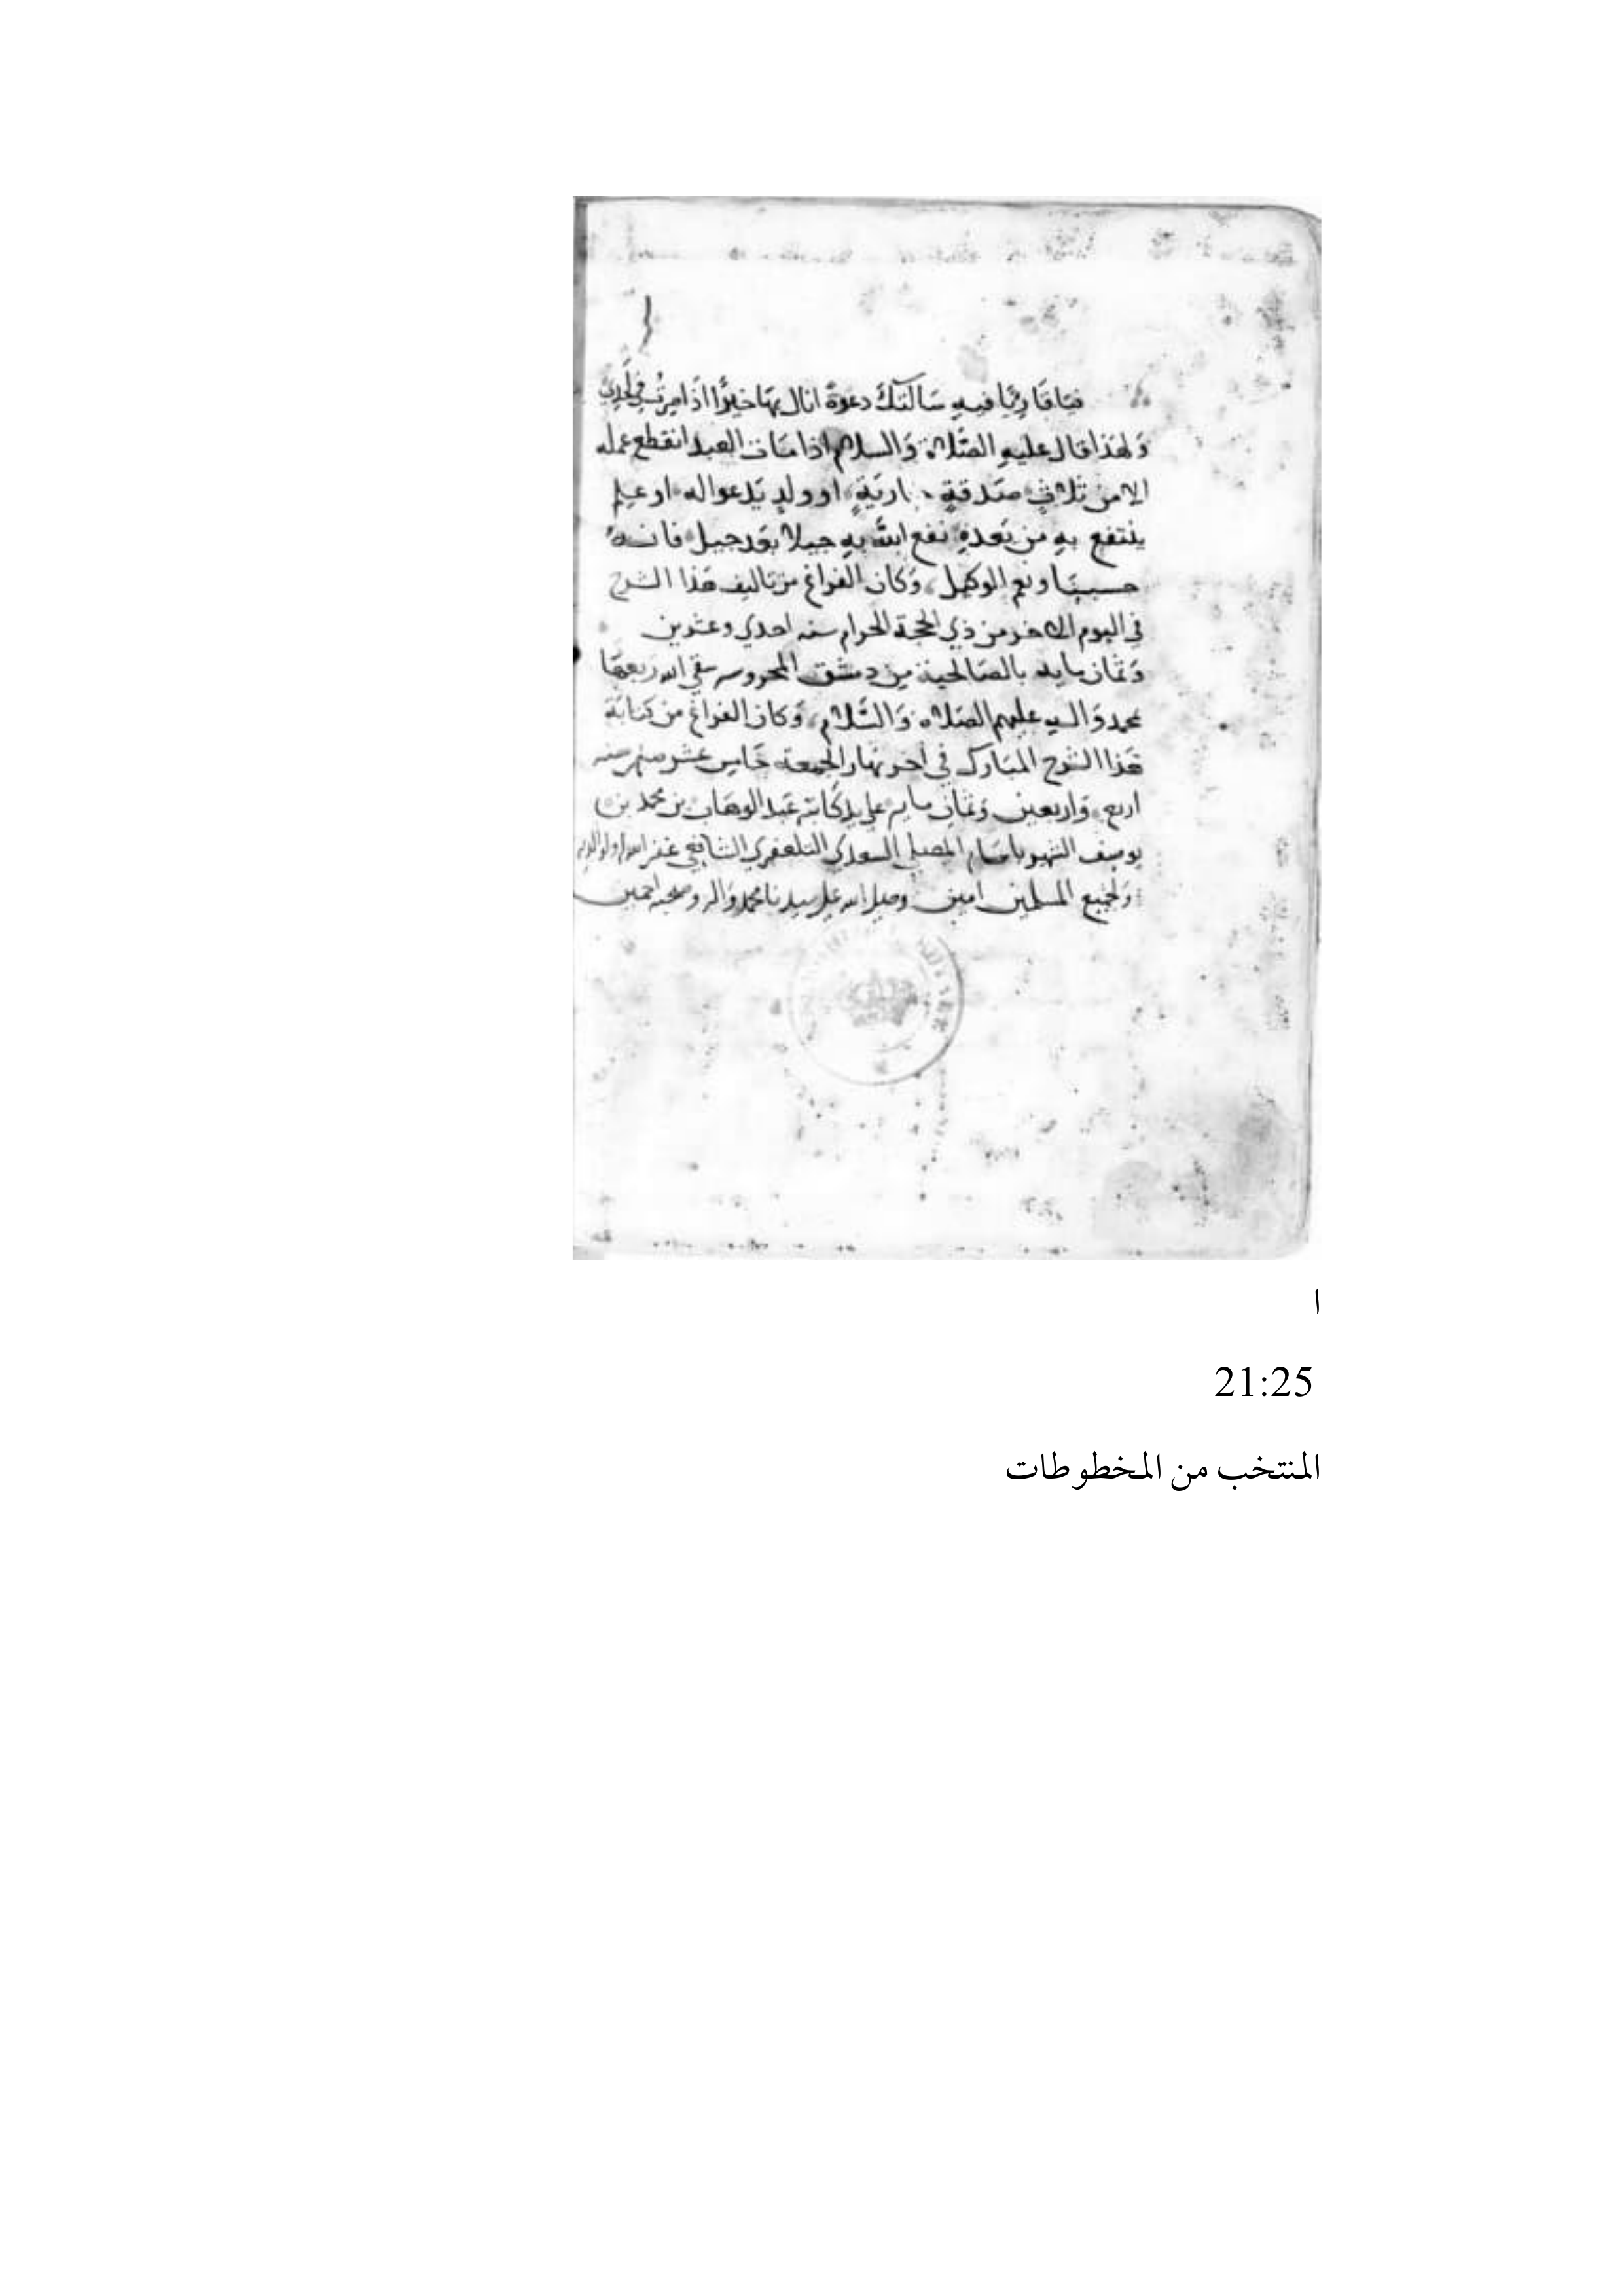 فيا قارئا فيه سالتك دعوة انال بها خيرا اذا صرت في لحدي
ولهذا قال عليه الصلاة والسلام اذا مات العبد انقطع عمله
الا من ثلاث صدقة جارية او ولد يدعو له او علم
ينتفع به من بعده نفع الله به جيلا بعد جيل فانه
حسبنا ونعم الوكيل وكان الفراغ من تاليف هذا الشرح
في اليوم الاخر من ذي الحجة الحرام سنه احدي وعشرين
وثمان مايه بالصالحية من دمشق المحروسه سقي الله ربعها
محمد واله عليهم الصلاه والسلام وكان الفراغ من كتابة
هذا الشرح المبارك في اخر نهار الجمعة خامس عشر سنه
اربع واربعين وثمان مايه علي يد كاتبه عبد الوهاب بن محمد بن
يوسف الشهير السعدي التلعفري الشافعي غفر الله له ولوالديه
ولجميع المسلمين امين وصلي الله علي سيدنا محمد واله وصحبه اجمعين
ا
21:25
المنتخب من المخطوطات